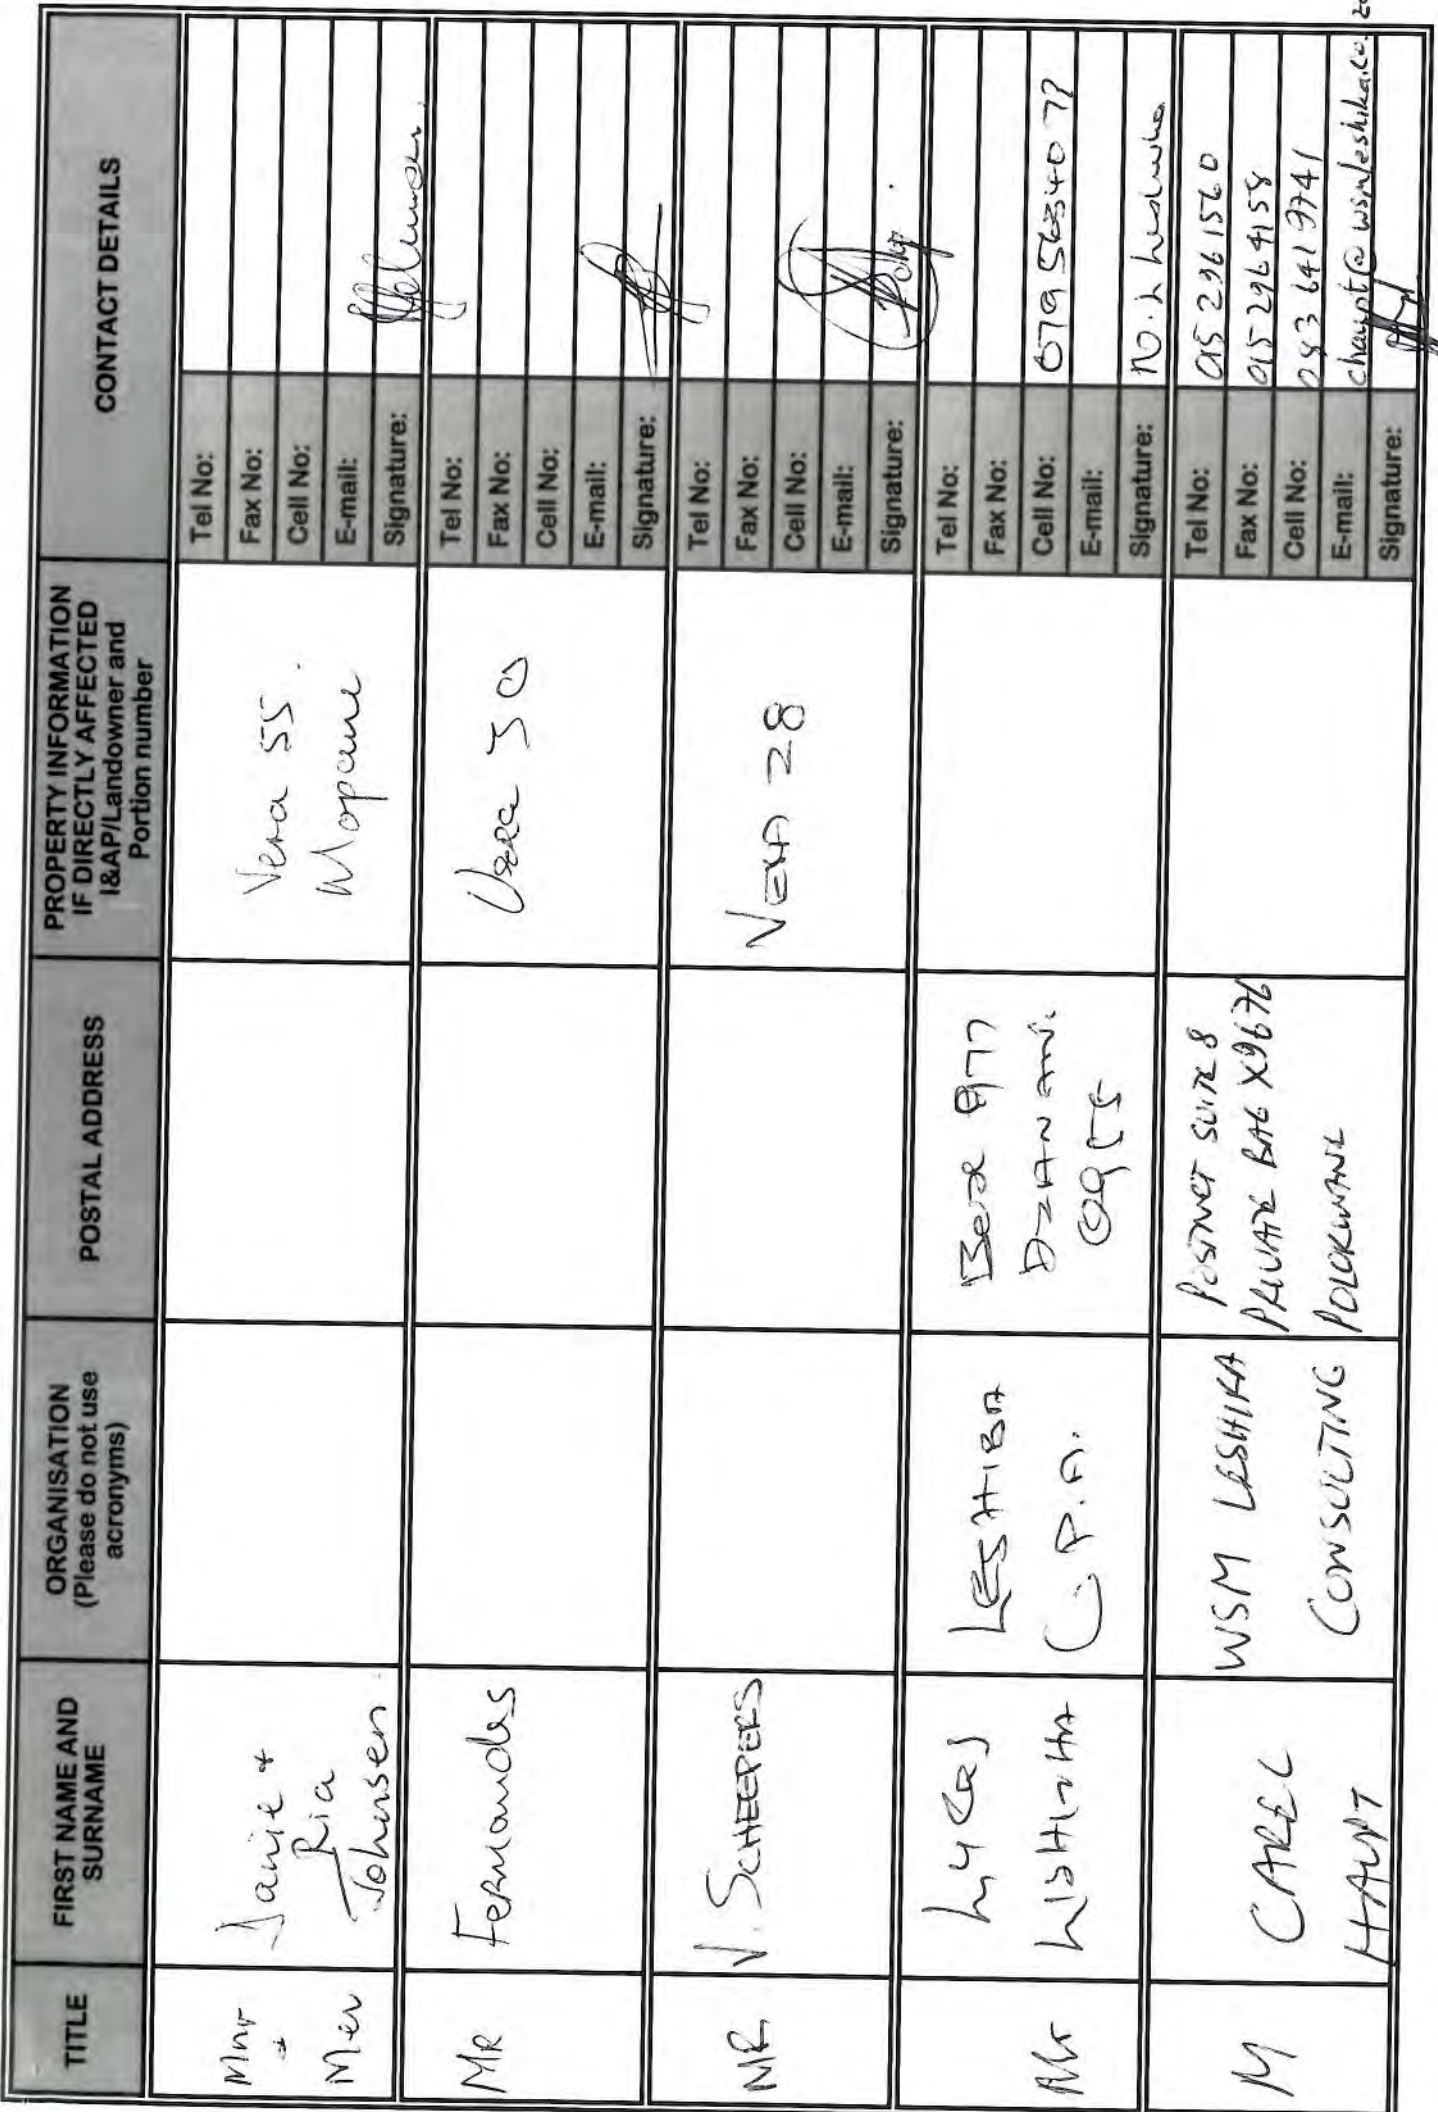 TITLE
FIRST NAME AND
SURNAME
ORGANISATION
(Please do not use
acronyms)
POSTAL ADDRESS
PROPERTY INFORMATION
IF DIRECTLY AFFECTED
I&AP/Landowner and
Portion number
CONTACT DETAILS
Mnr
+
Mev
Janie +
Ria
Johnsen
Vera 55.
Mopane
Tel No:
Fax No:
Cell No:
E-mail:
Signature:
MR
Fernandes
Vera 30
Tel No:
Fax No:
Cell No:
E-mail:
Signature:
MR
V. SCHEEPERS
VERA 28
Tel No:
Fax No:
Cell No:
E-mail:
Signature:
Mr
LESHIBA
C.P.A.
DZANANI.
0955
Tel No:
Fax No:
Cell No:
E-mail:
Signature:
M
CAREL
HAUPT
WSM LESHIKA
CONSULTING
POSTNET SUITE 8
PRIVATE BAG X9676
POLOKWANE
Tel No: 015 296 1560
Fax No: 015 296 4158
Cell No: 083 641 9741
E-mail: chaupt@wsmleshika.co.za
Signature: